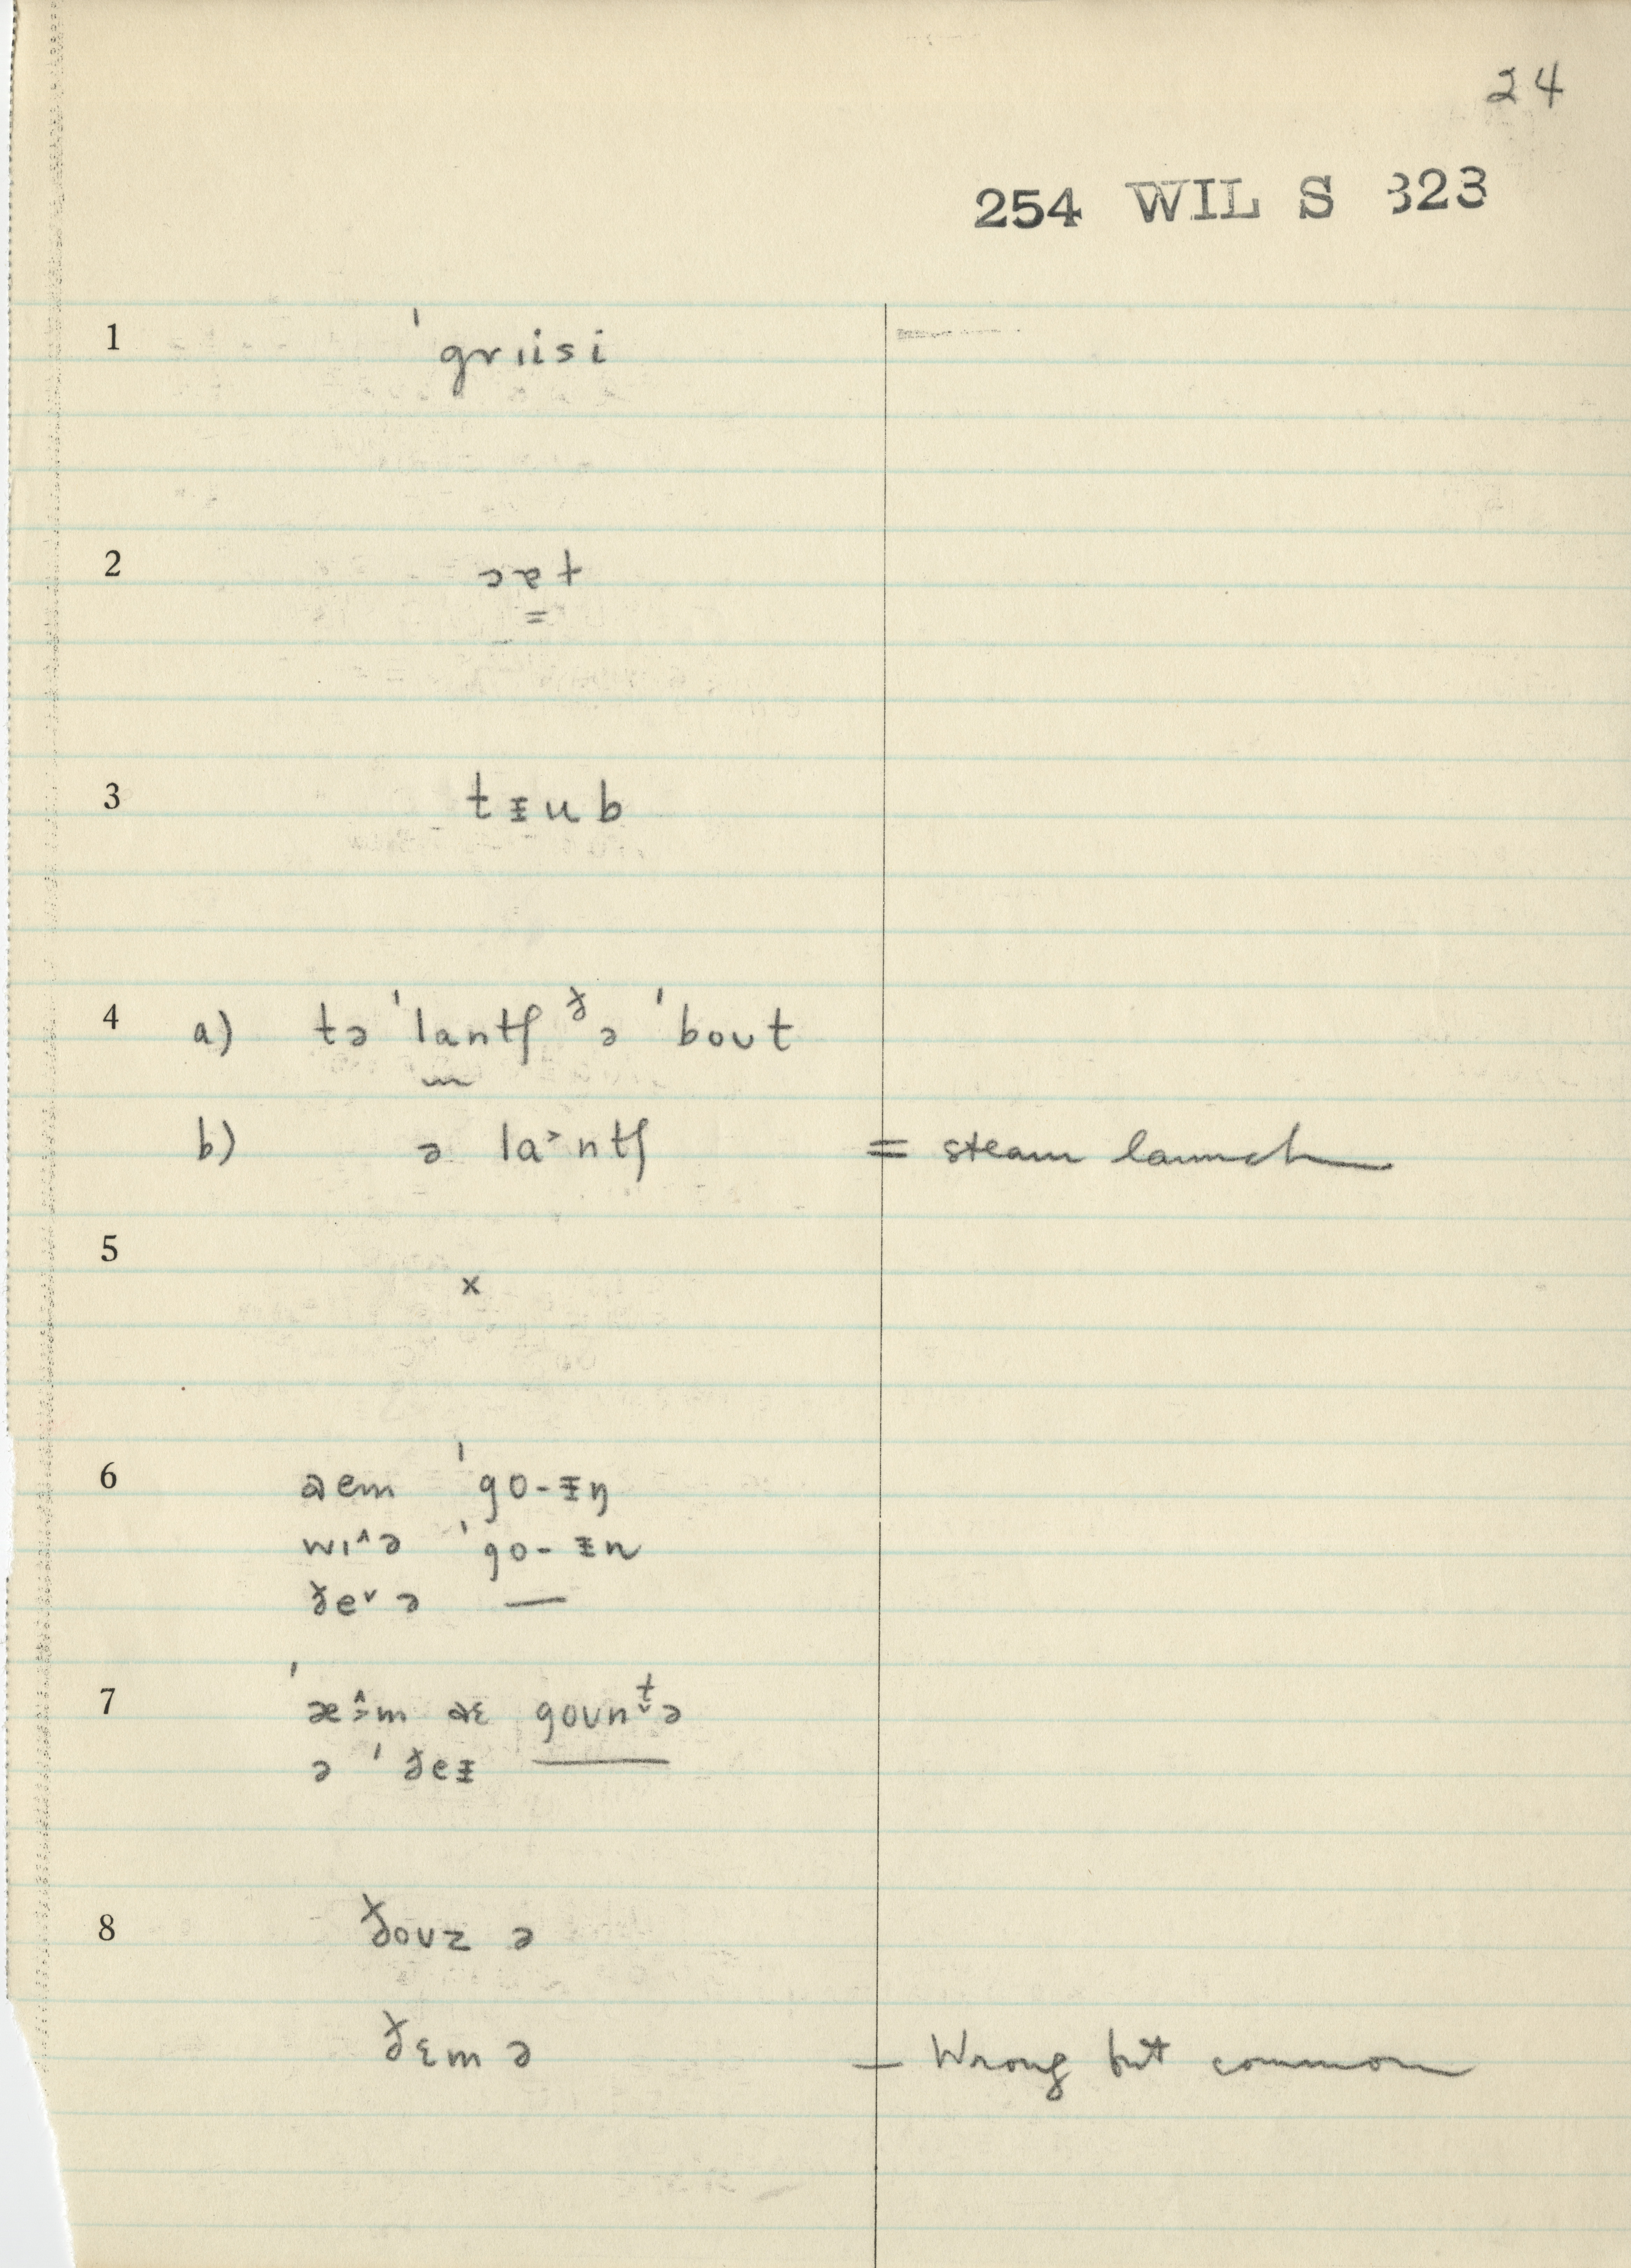 24
254 WIL S 323
1 ˈgrɪisi
2 ɔɐt
3 tᵻub
4 a) tə ˈlantʃ ᵟə ˈbout
b) ə la˃ntʃ = steam launch
5 x
6 aem ˈgo-ᵻŋ
wɪ^ə ˈgo-ᵻn
ðe˅ə —
7
ə ˈðeᵻ ———
8 ðouz ə
ðɛm ə — Wrong but common